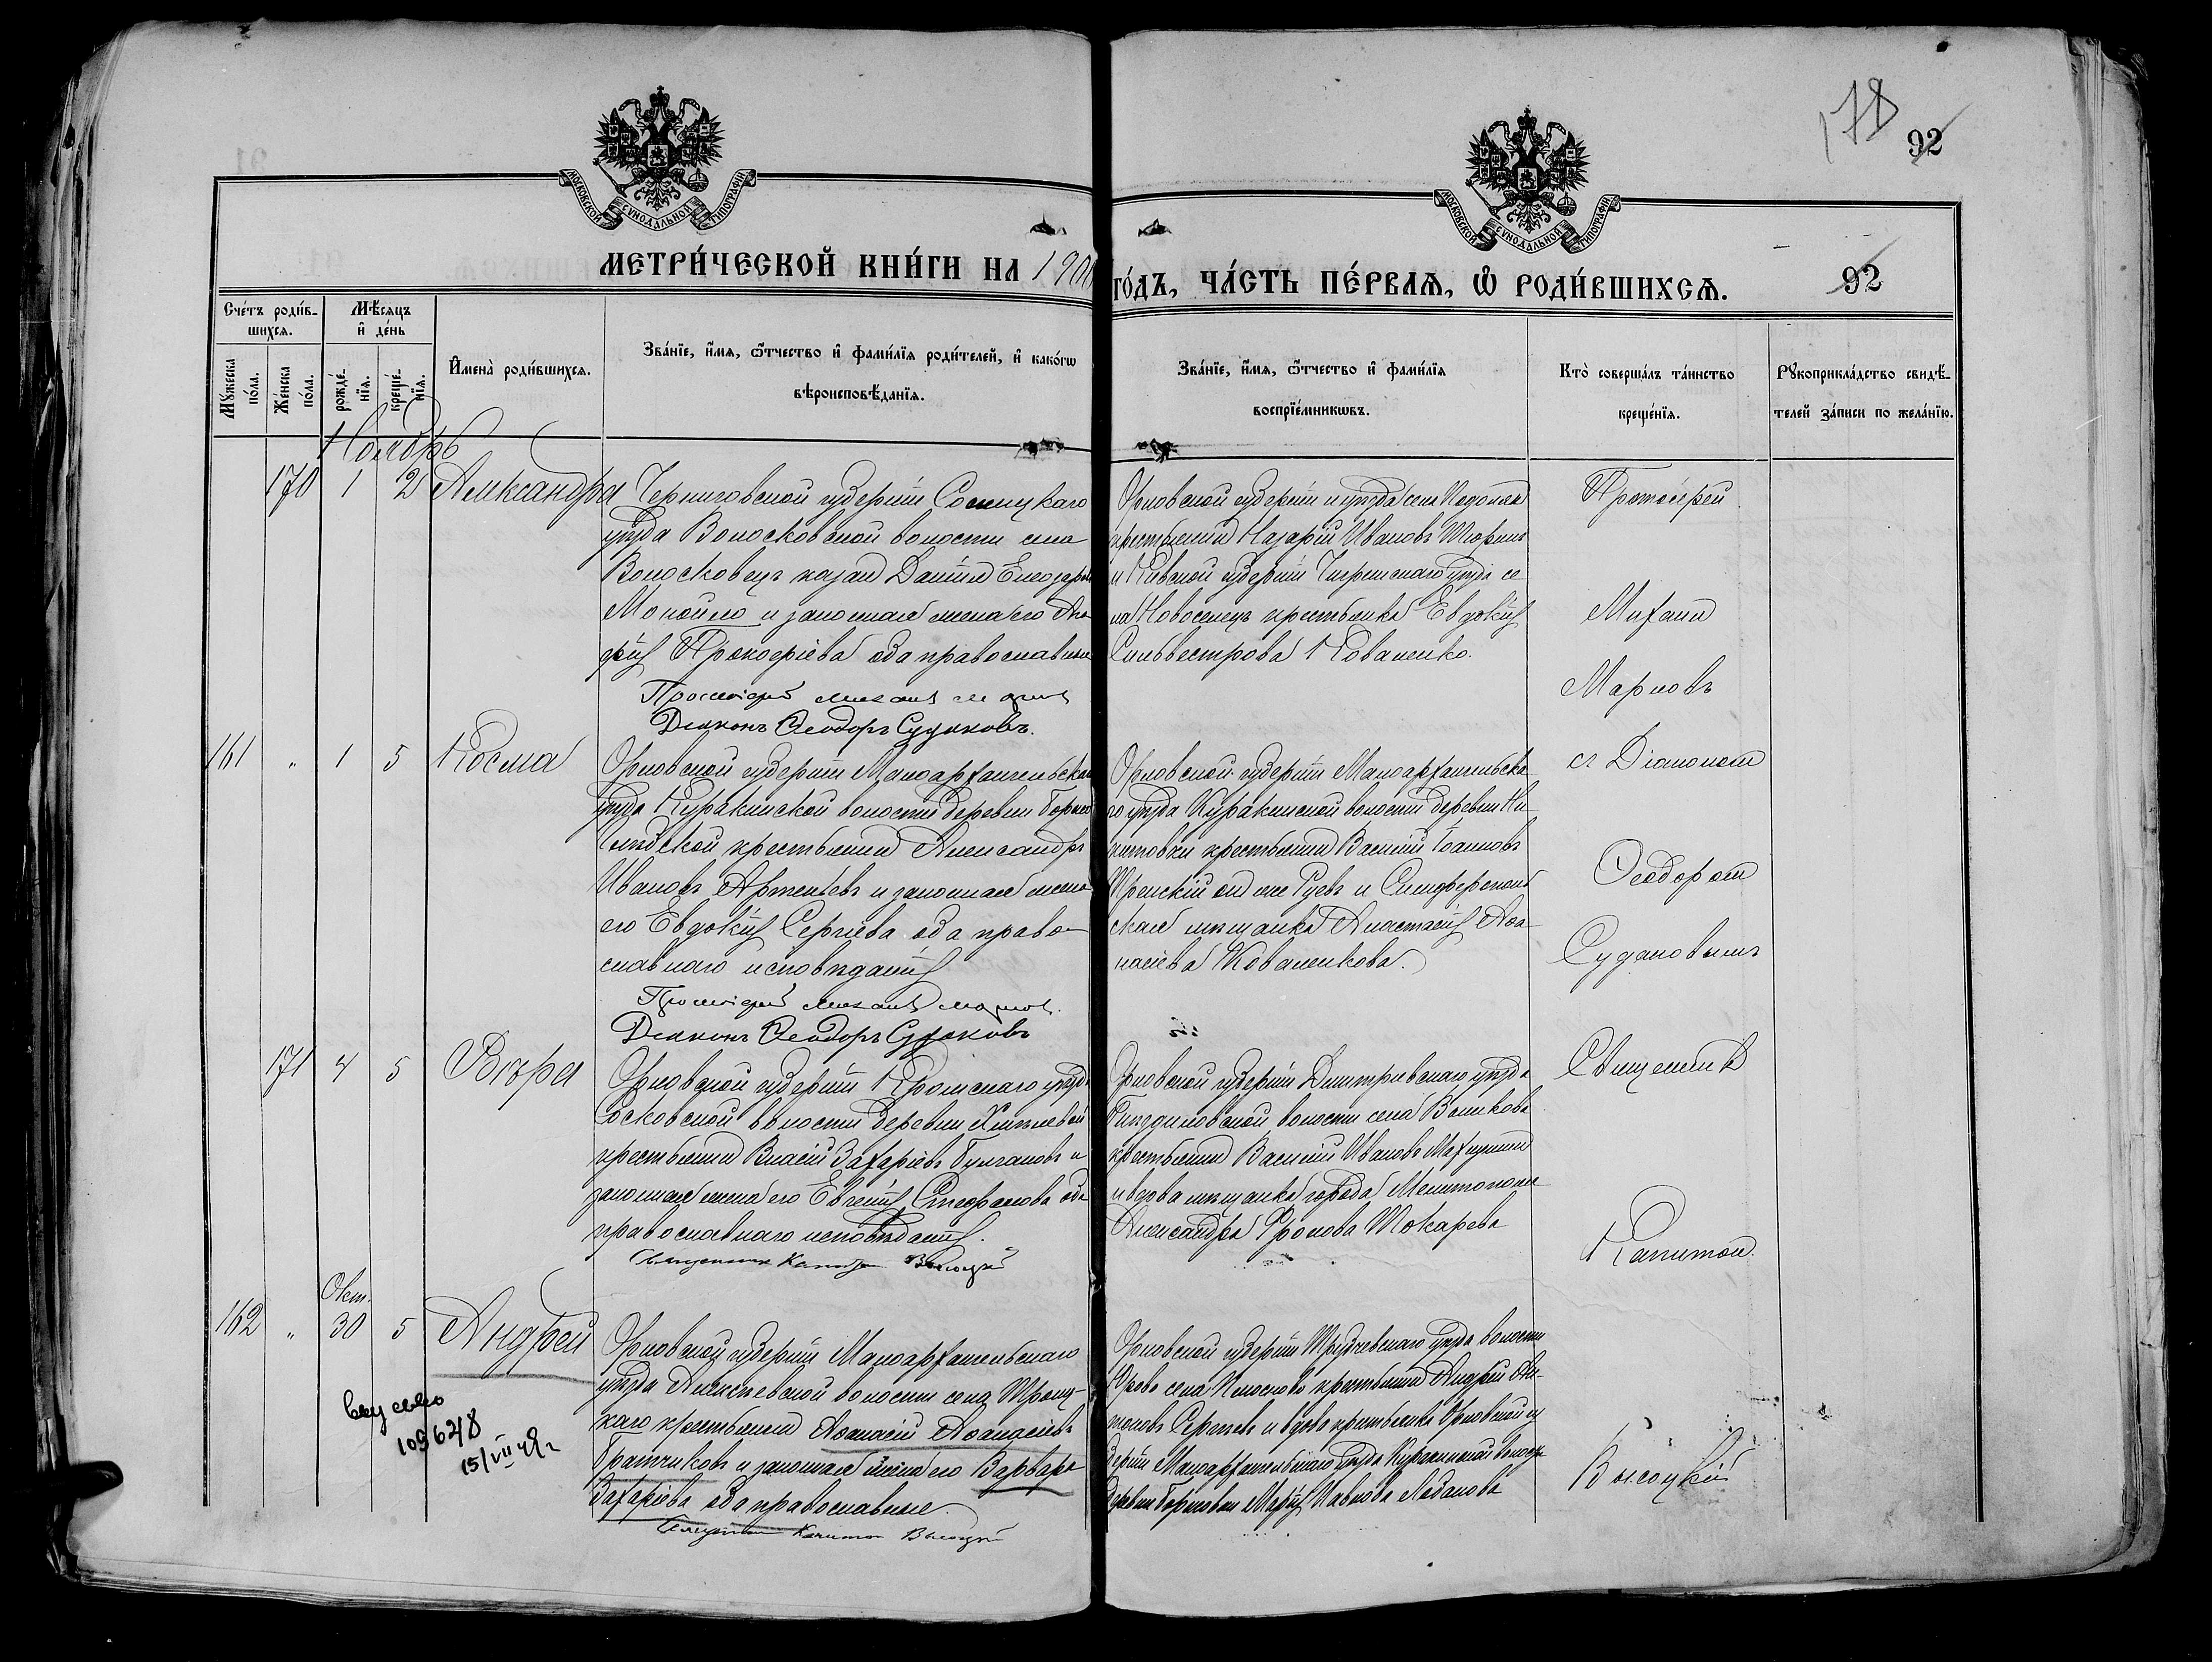 178
92
МОСКОВСКОЙ СѴНОДАЛЬНОЙ ТИПОГРАФІИ
МОСКОВСКОЙ СѴНОДАЛЬНОЙ ТИПОГРАФІИ
МЕТРИ́ЧЕСКОЙ КНИ́ГИ НА 1900
ГО́ДЪ, ЧА́СТЬ ПЕ́РВАѦ, Ѡ҆ РОДИ́ВШИХСѦ.
92
Сче́тъ роди́в-
шихсѧ.
Мѣ́сѧцъ
и҆ де́нь
Мꙋ́жеска
по́ла.
Же́нска
по́ла.
рожде́-
нїѧ.
креще́-
нїѧ.
И҆мена̀ роди́вшихсѧ.
Зва́нїе, и҆́мѧ, ѻ҆́тчество и҆ фами́лїѧ роди́телей, и҆ како́гѡ
вѣроисповѣ́данїѧ.
Зва́нїе, и҆́мѧ, ѻ҆́тчество и҆ фами́лїѧ
воспрїе́мникѡвъ.
Кто̀ соверша́лъ та́инство
креще́нїѧ.
Рꙋкоприкла́дство свидѣ́-
телей за́писи по жела́нїю.
Ноябрь
170 1 2 Александра
Черниговской губерніи Сосницкаго
уѣзда Волосковской волости села
Волосковецъ казакъ Даніилъ
и законная жена его
Прокофіева оба православные
Протоіерей Михаилъ
Діаконъ Ѳеодоръ Судаковъ.
Орловской губерніи и уѣзда села
крестьянинъ Назарій Ивановъ Тюринъ
и Кіевской губерніи Чигринскаго уѣзда се
ла Новоселецъ крестьянка Евдокія
Сильвестрова Коваленко.
Протоіерей
Михаилъ
Марковъ
161 " 1 5 Косма
Орловской губерніи Малоархангельскаго
уѣзда Куракинской волости деревни
крестьянинъ Александръ
Ивановъ Артемьевъ и законная жена
его Евдокія Сергіева оба право-
славнаго исповѣданія
Протоіерей Михаилъ Марковъ.
Діаконъ Ѳеодоръ Судаковъ
Орловской губерніи Малоархангельска
го уѣзда Куракинской волости деревни Ни
китовки крестьянинъ Василій Іоанновъ
онъ же Гуевъ и Симферополь
ская мѣщанка Анастасія Аѳа
насіева Коваленкова.
съ Діакономъ
Ѳеодоромъ
Судаковымъ
171 4 5 Вѣра
Орловской губерніи Кромскаго уѣзда
Сосковской волости деревни
крестьянинъ Власій Захаріевъ Булгаковъ и
законная жена его Евгенія Стефанова оба
православнаго исповѣданія.
Священникъ Капитонъ Высоцкій
Орловской губерніи Дмитровскаго уѣзда
волости села Волкова
крестьянинъ Василій Ивановъ
и вдова мѣщанка города Мелитополя
Александра Фролова Токарева
Священникъ
Капитонъ
Окт.
162 " 30 5 Андрей
Орловской губерніи Малоархангельскаго
уѣзда Алексѣевской волости села Троиц-
каго крестьянинъ Аѳанасій Аѳанасіевъ
Братчиковъ и законная жена его Варвара
Захаріева оба православные.
Священникъ Капитонъ Высоцкій
Орловской губерніи Трубчевскаго уѣзда волости
села крестьянинъ Андрей
Сергѣевъ и вдова крестьянка Орловской гу
берніи Малоархангельскаго уѣзда Куракинской волости
деревни Марія Павлова
Высоцкій
109648
15/VII 49 г